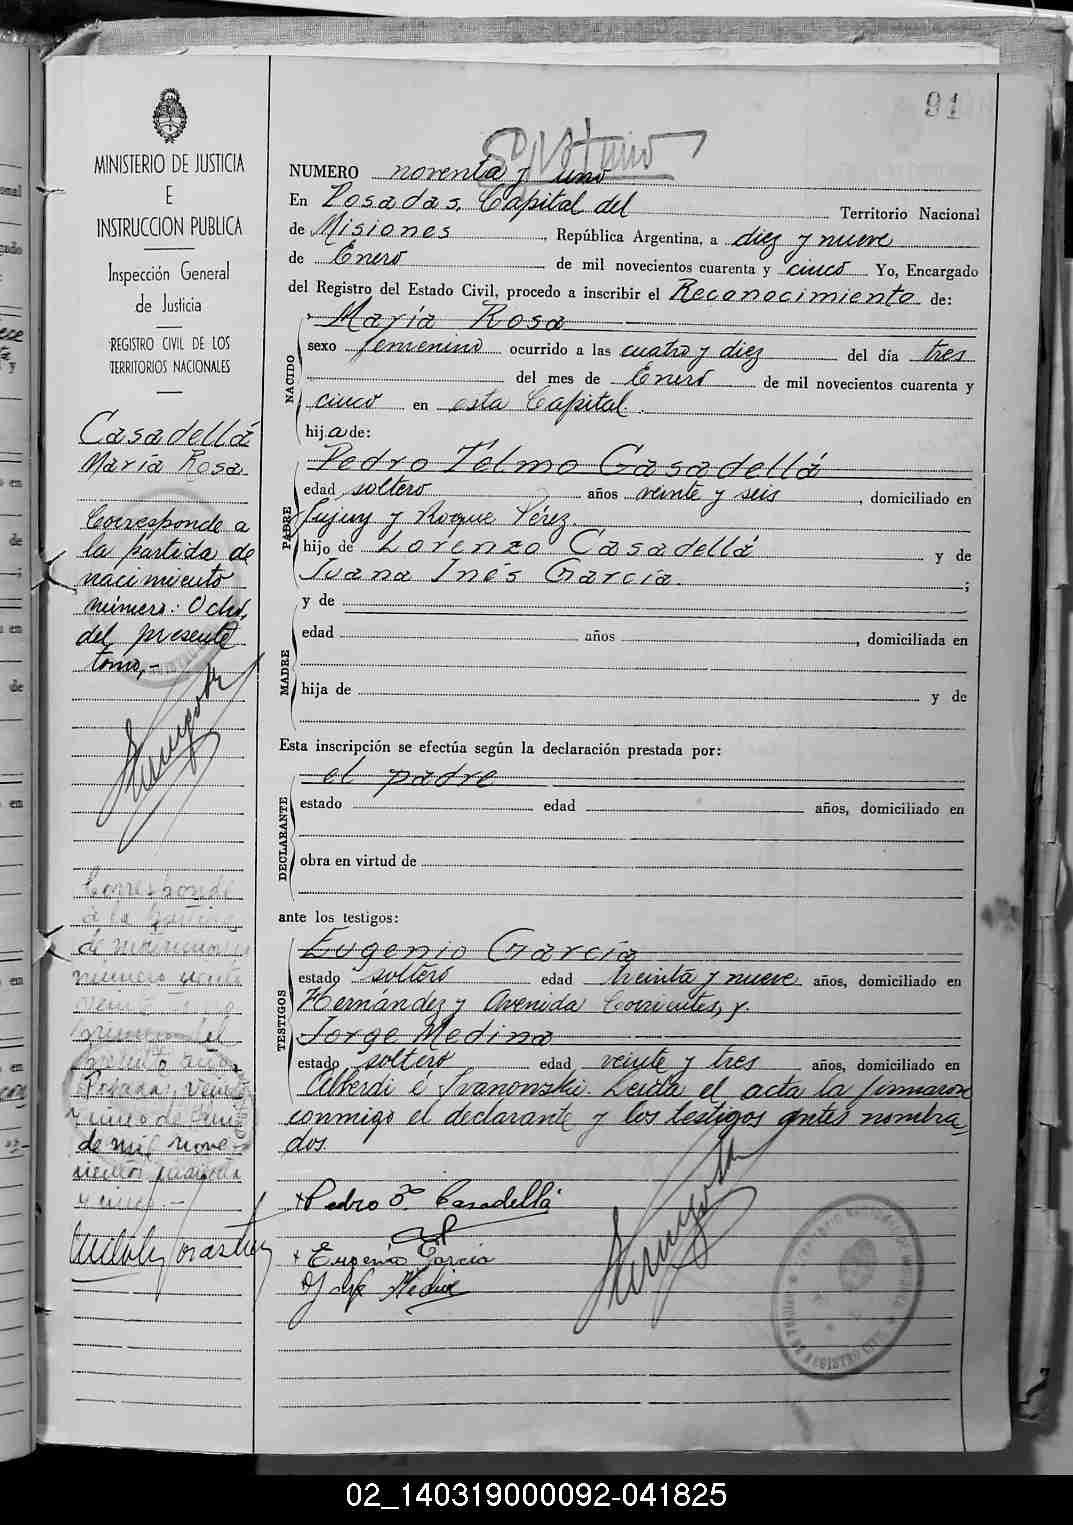 91
MINISTERIO DE JUSTICIA
E
INSTRUCCION PUBLICA
Inspección General
de Justicia
REGISTRO CIVIL DE LOS
TERRITORIOS NACIONALES
Casadellá
María Rosa
Corresponde a
la partida de
nacimiento
número: Ocho,
del presente
tomo,-
Corresponde
a la partida
de matrimonio
número
presente año
Posadas, veinti
cinco de
de mil nove-
cientos cuarenta
y cinco.-
NUMERO noventa y uno
En Posadas, Capital del Territorio Nacional
de Misiones, República Argentina, a diez y nueve
de Enero de mil novecientos cuarenta y cinco Yo, Encargado
del Registro del Estado Civil, procedo a inscribir el Reconocimiento de:
María Rosa
NACIDO
sexo femenino ocurrido a las cuatro y diez del día tres
del mes de Enero de mil novecientos cuarenta y
cinco en esta Capital.
hija de:
PADRE
Pedro Telmo Casadellá
edad soltero años veinte y seis, domiciliado en
Jujuy y Roque Pérez
hijo de Lorenzo Casadellá y de
Juana Inés García. ;
y de
MADRE
edad años , domiciliada en
hija de y de
Esta inscripción se efectúa según la declaración prestada por:
el padre
DECLARANTE
estado edad años, domiciliado en
obra en virtud de
ante los testigos:
TESTIGOS
Eugenio García
estado soltero edad treinta y nueve años, domiciliado en
Hernández y Avenida Corrientes, y.
Jorge Medina
estado soltero edad veinte y tres años, domiciliado en
Alberdi e Ivanowski. Leída el acta la firmaron
conmigo el declarante y los testigos antes nombra-
dos.
+Pedro T. Casadellá
+ Eugenio García
Jorge Medina
02_140319000092-041825